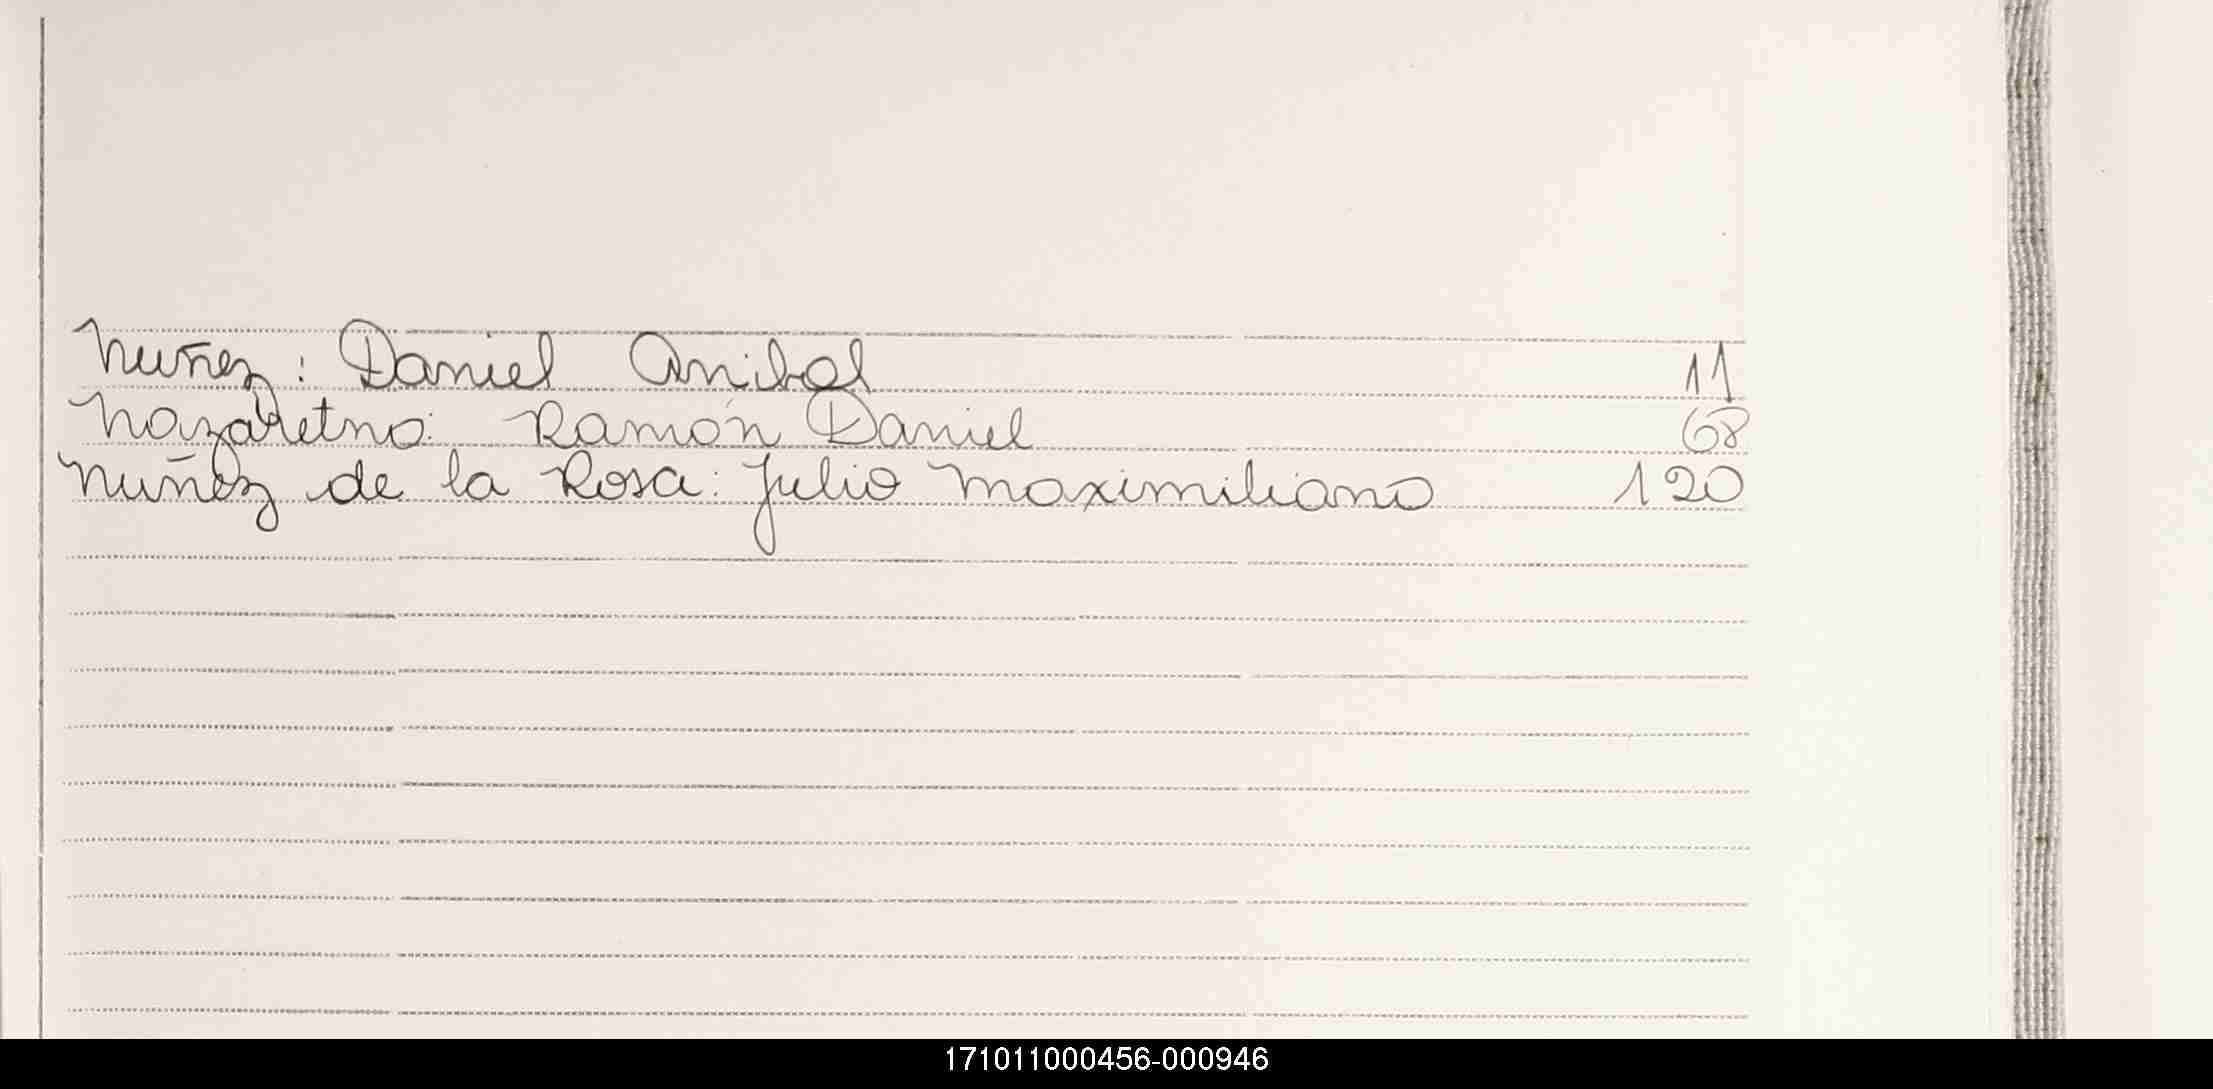 Nuñez: Daniel Anibal 11
Nazaretno: Ramón Daniel 68
Nuñez de la Rosa: Julio Maximiliano 120
171011000456-000946